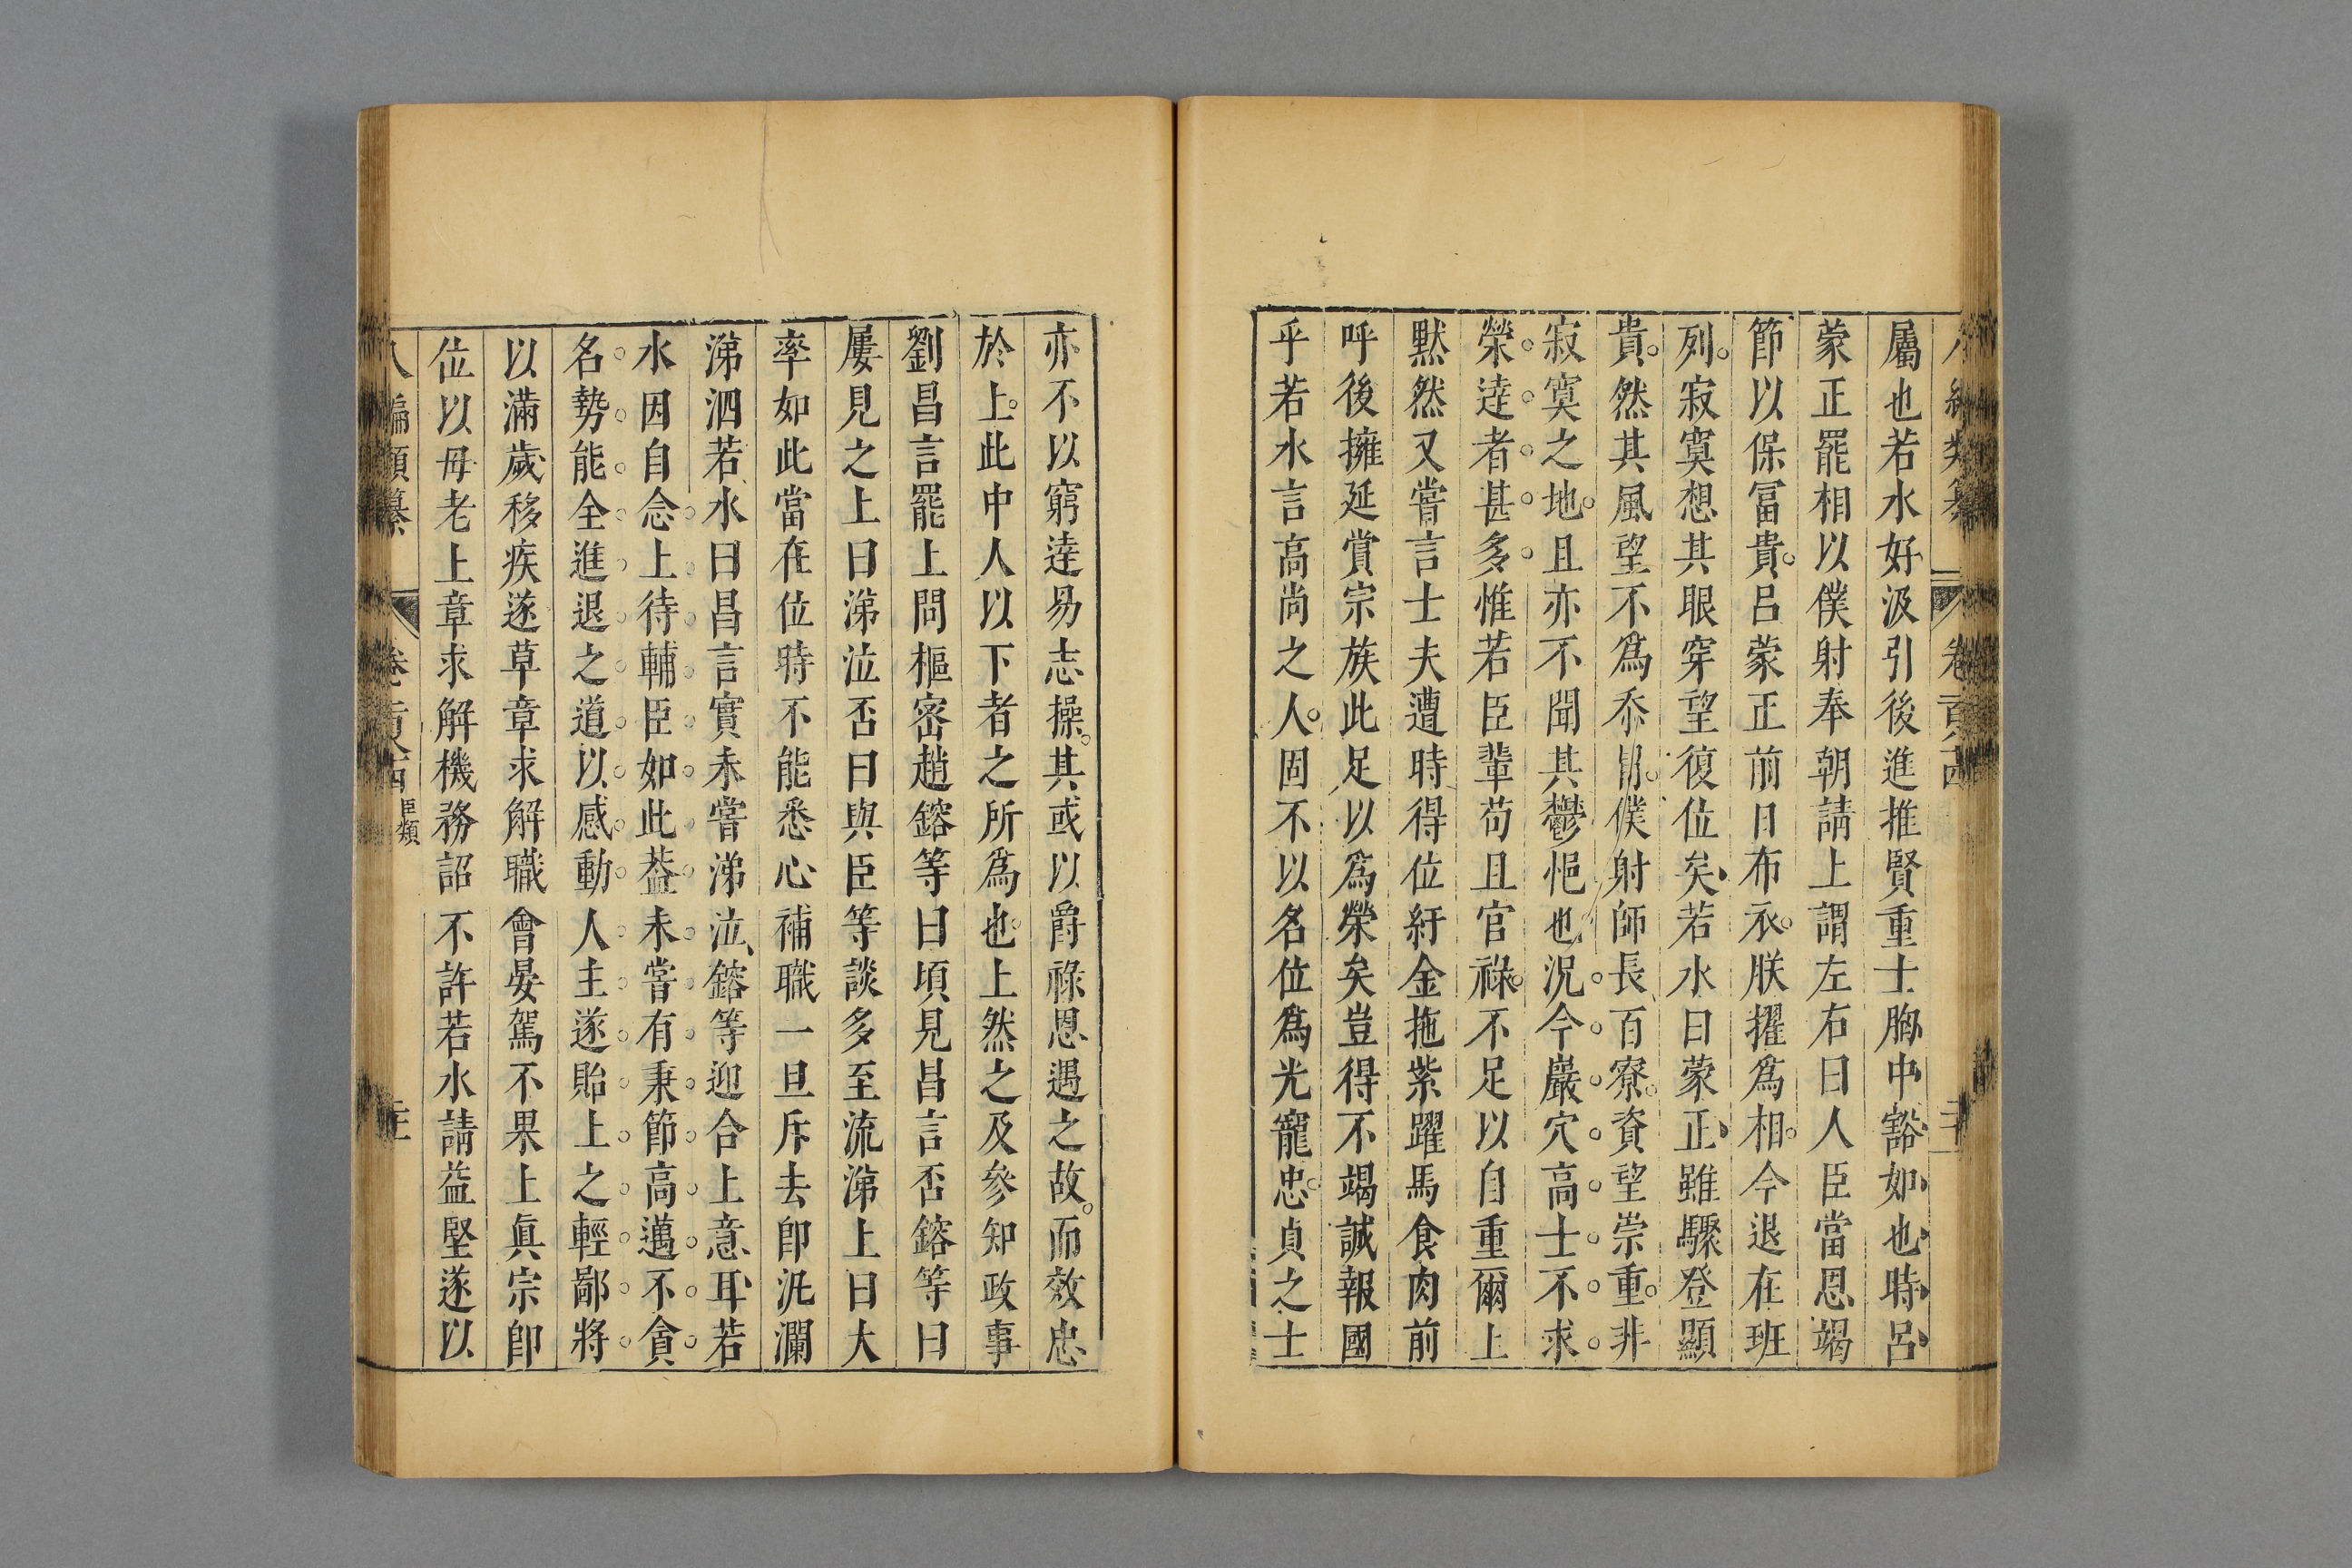 屬也若水好汲引後進推賢重士胸中豁如也時呂
蒙正罷相以僕射奉朝請上謂左右曰人臣當恩竭
節以保冨貴呂蒙正前日布衣朕擢爲相今退在班
列寂寞想其眼穿望復位矣若水曰蒙正雖驟登顯
貴然其風望不爲忝僕射師長百寮資望崇重非
寂寞之地且亦不聞其鬱悒也況今巖穴高士不求
榮逹者甚多惟若臣輩苟且官祿不足以自重爾上
黙然又嘗言士夫遭時得位紆金拖紫躍馬食肉前
呼後擁延賞宗族此足以爲榮矣豈得不竭誠報國
乎若水言高尚之人固不以名位爲光寵忠貞之士
亦不以窮逹易志操其或以爵祿恩遇之故而效忠
於上此中人以下者之所爲也上然之及參知政事
劉昌言罷上問樞密趙鎔等曰頃見昌言否鎔等曰
屢見之上曰涕泣否曰與臣等談多至流涕上曰大
率如此當在位時不能悉心補職一旦斥去卽汍瀾
涕泗若水曰昌言實未嘗涕泣鎔等迎合上意耳若
水因自念上待輔臣如此葢未嘗有秉節高邁不貪
名勢能全進退之道以感動人主遂貽上之輕鄙將
以滿歲移疾遂草章求解職會晏駕不果上眞宗卽
位以母老上章求解機務詔不許若水請益堅遂以
臣類